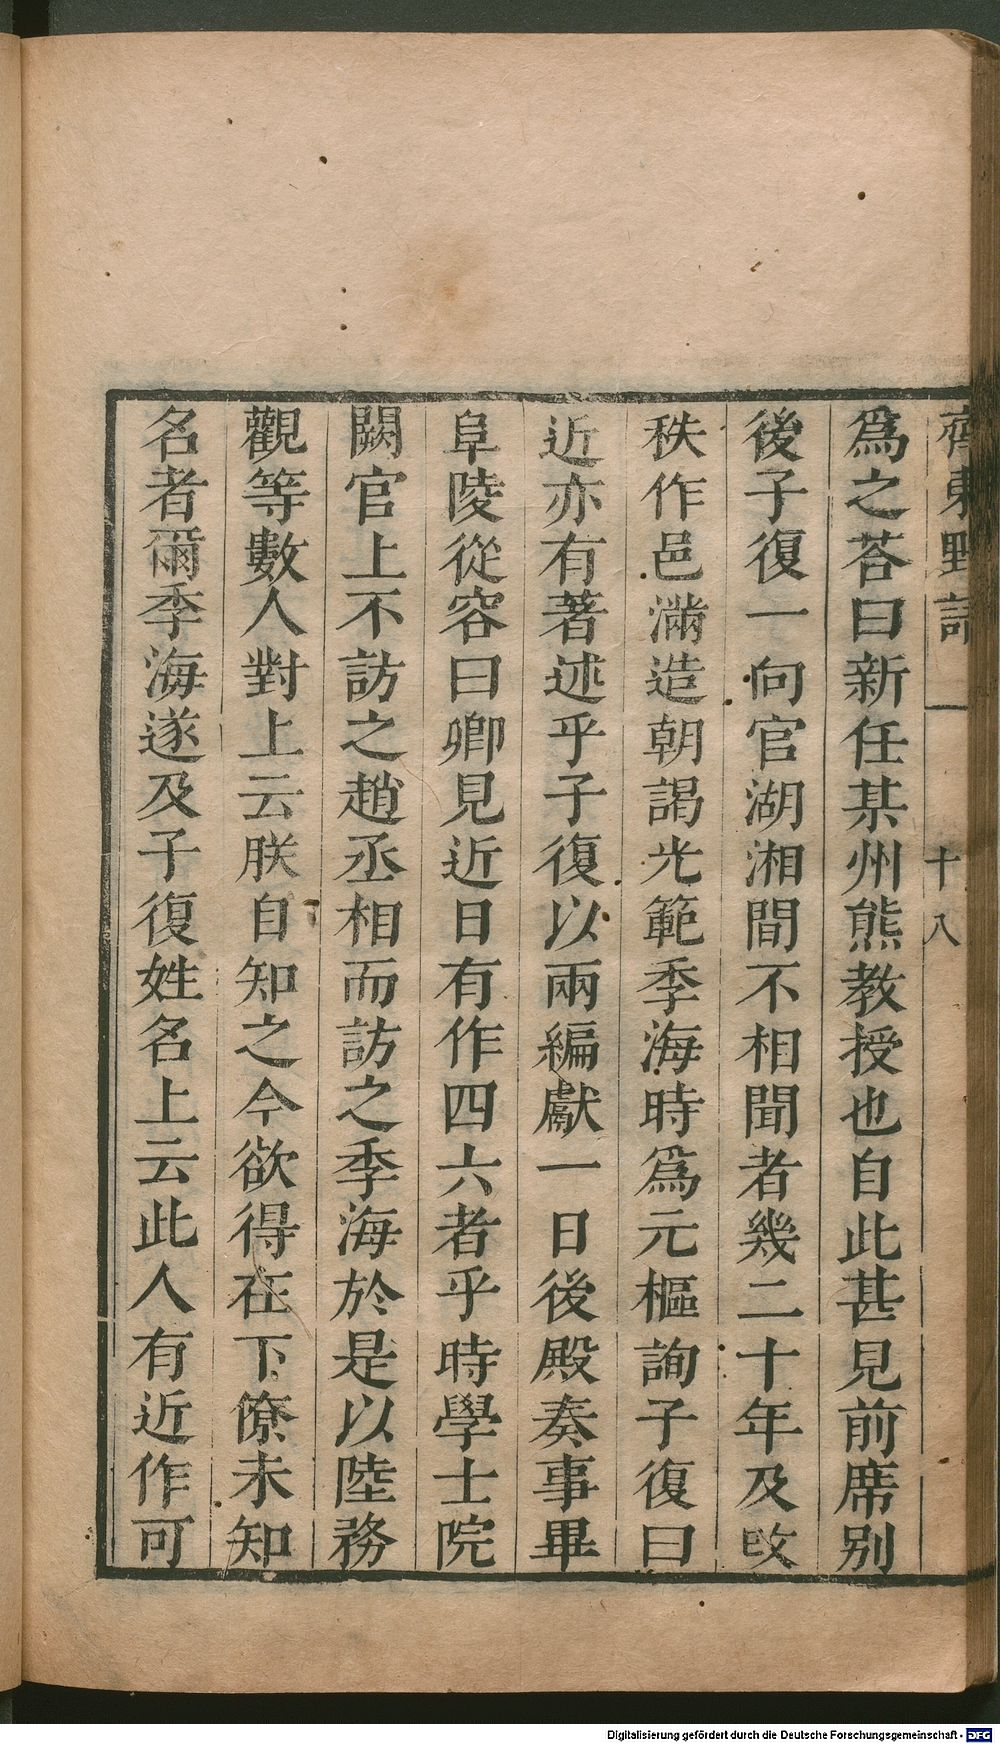 齊東野語
十八
爲之荅曰新任某州熊教授也自此甚見前席別
後子復一向官湖湘間不相聞者幾二十年及改
秩作邑滿造朝謁光範季海時爲元樞詢子復曰
近亦有著述乎子復以兩編獻一日後殿奏事畢
阜陵從容曰卿見近日有作四六者乎時學士院
闕官上不訪之趙丞相而訪之季海於是以陸務
觀等數人對上云朕自知之今欲得在下僚未知
名者爾季海遂及子復姓名上云此人有近作可
Digitalisierung gefördert durch die Deutsche Forschungsgemeinschaft - DFG